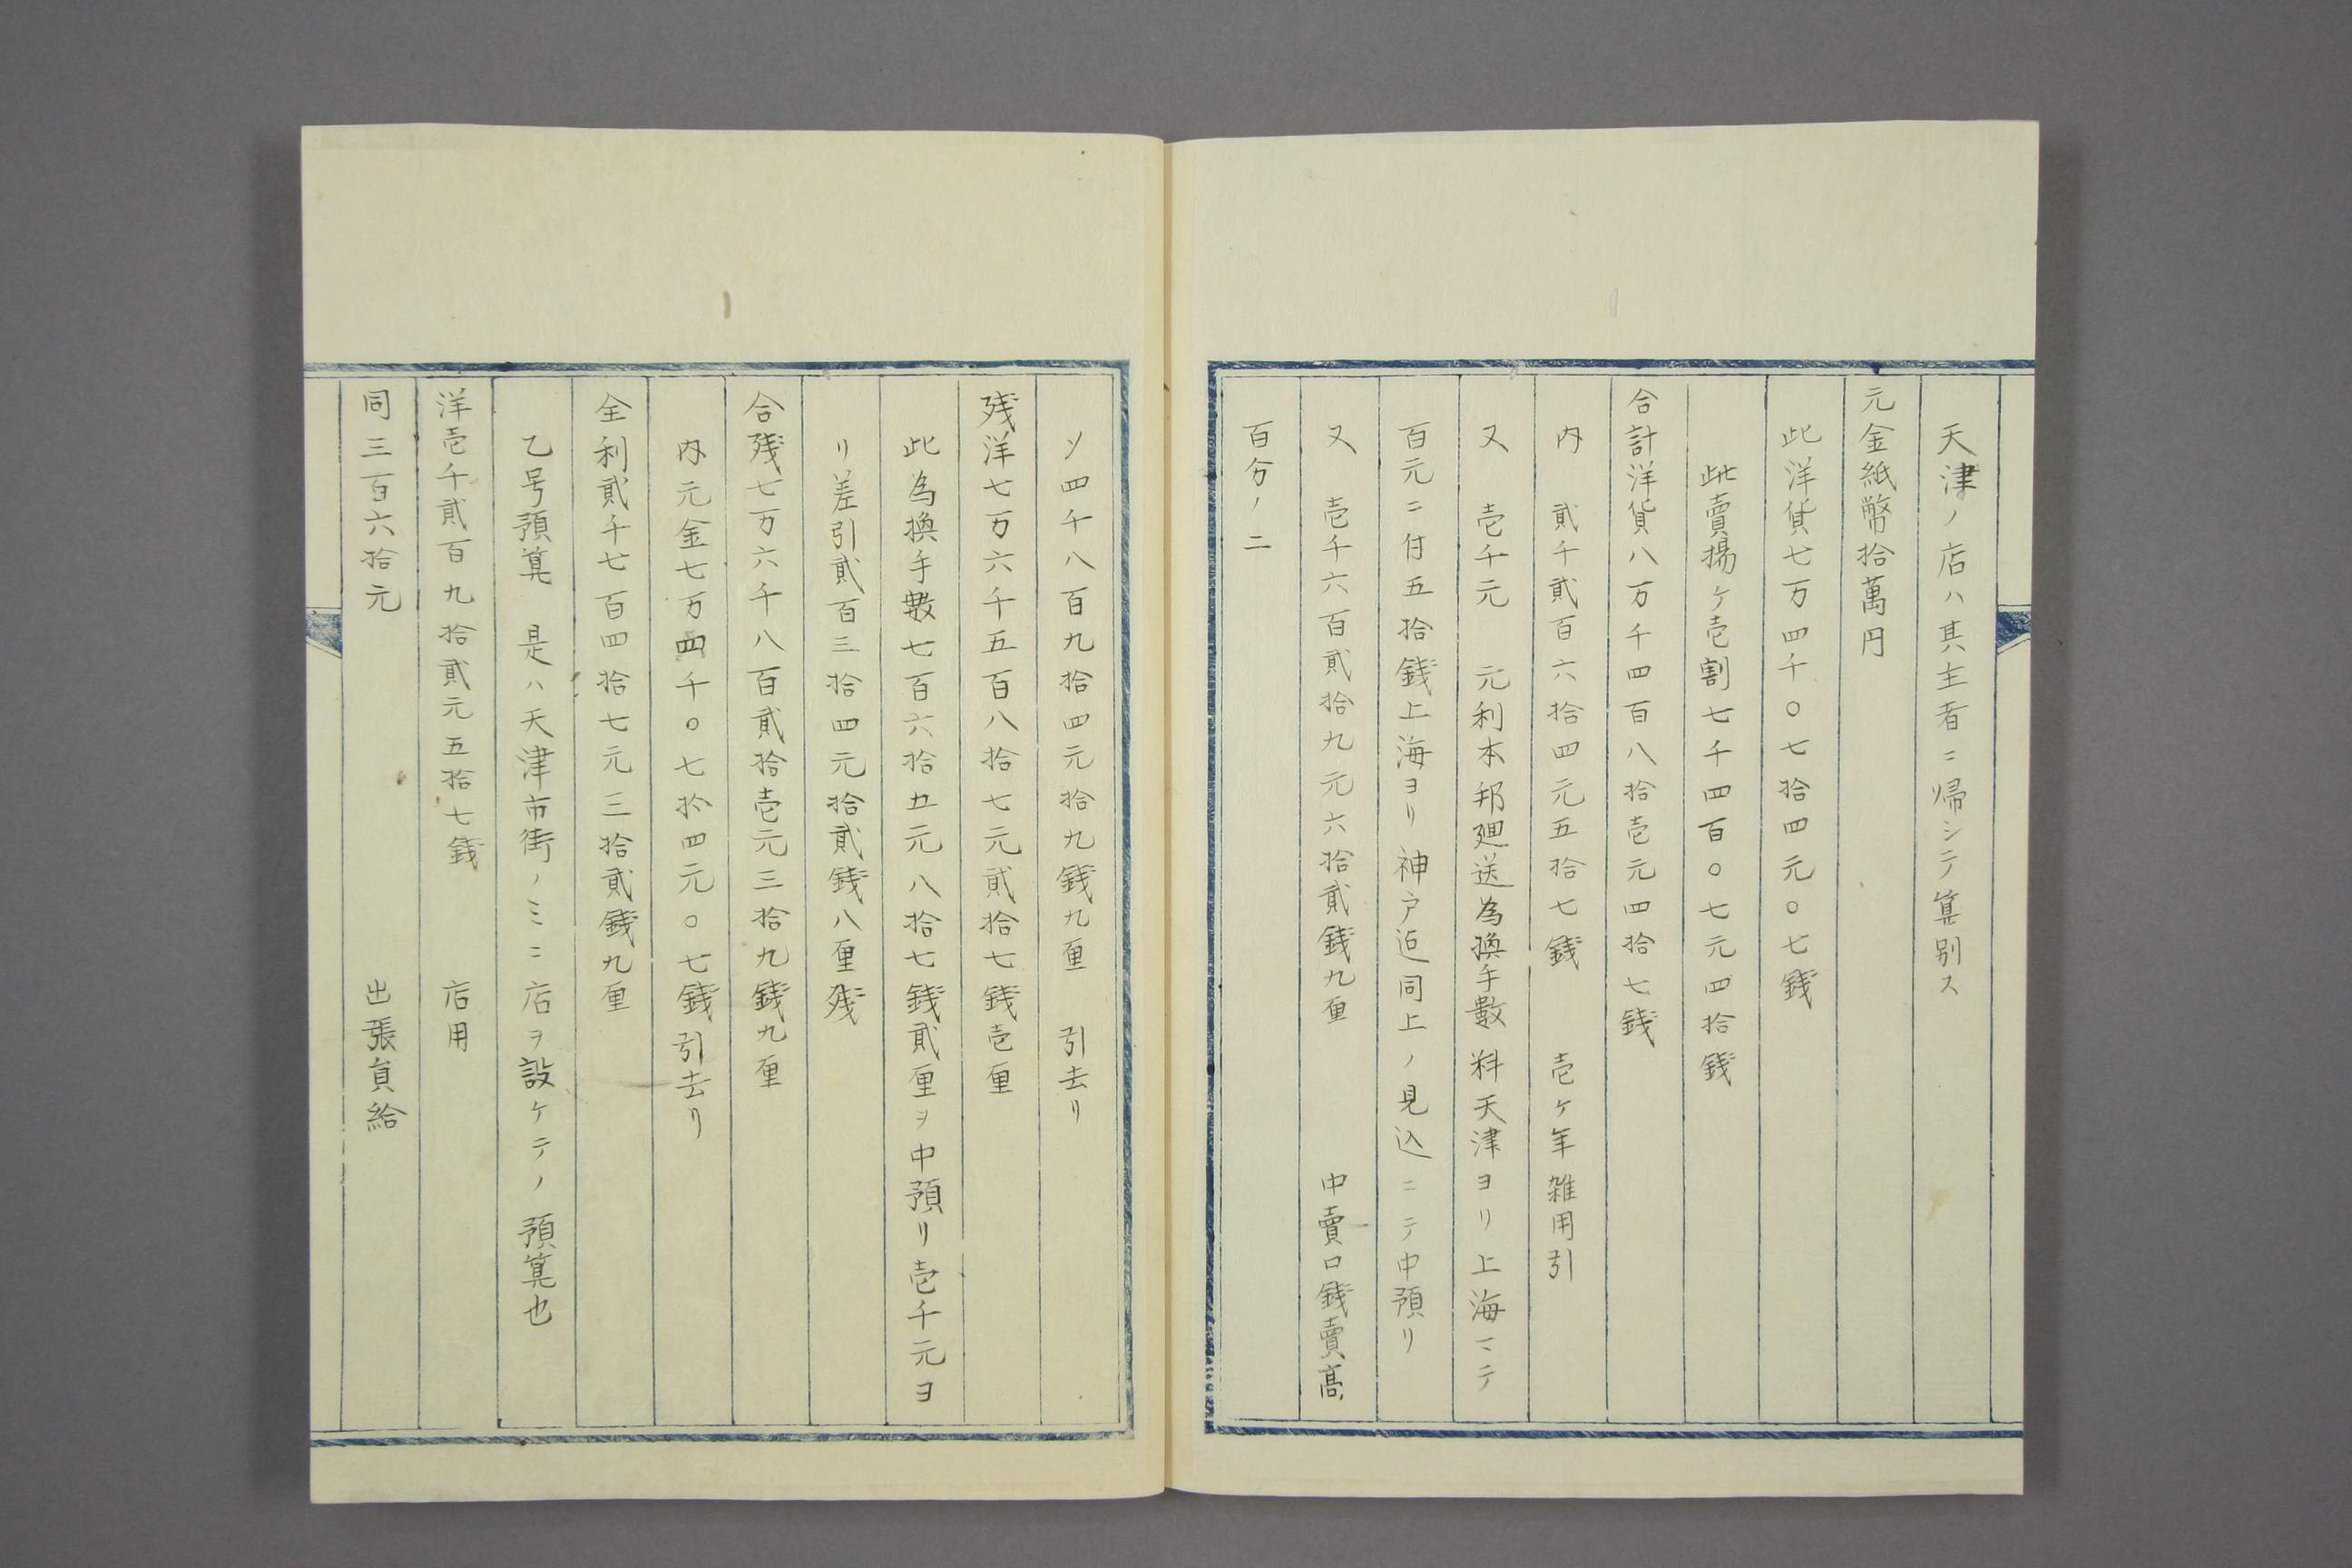 天津ノ店ハ其主者ニ帰シテ算別ス
元金紙幣拾萬円
此洋貨七万四千〇七拾四元〇七銭
此賣揚ケ壱割七千四百〇七元四拾銭
合計洋貨八万千四百八拾壱元四拾七銭
内　貳千貳百六拾四元五拾七銭　壱ケ年雑用引
又　壱千元　元利本邦廻送為換手數料天津ヨリ上海マテ
百元ニ付五拾銭上海ヨリ神戸迠同上ノ見込ニテ中預リ
又　壱千六百貳拾九元六拾貳銭九厘　中賣口銭賣髙
百分ノ二
〆四千八百九拾四元拾九銭九厘　引去リ
残洋七万六千五百八拾七元貳拾七銭壱厘
此為換手数七百六拾五元八拾七銭貳厘ヲ中預リ壱千元ヨ
リ差引貳百三拾四元拾貳銭八厘残
合残七万六千八百貳拾壱元三拾九銭九厘
内元金七万四千〇七拾四元〇七銭引去リ
全利貳千七百四拾七元三拾貳銭九厘
乙号預算　是ハ天津市街ノミニ店ヲ設ケテノ預算也
洋壱千貳百九拾貳元五拾七銭　店用
同三百六拾元　出張員給